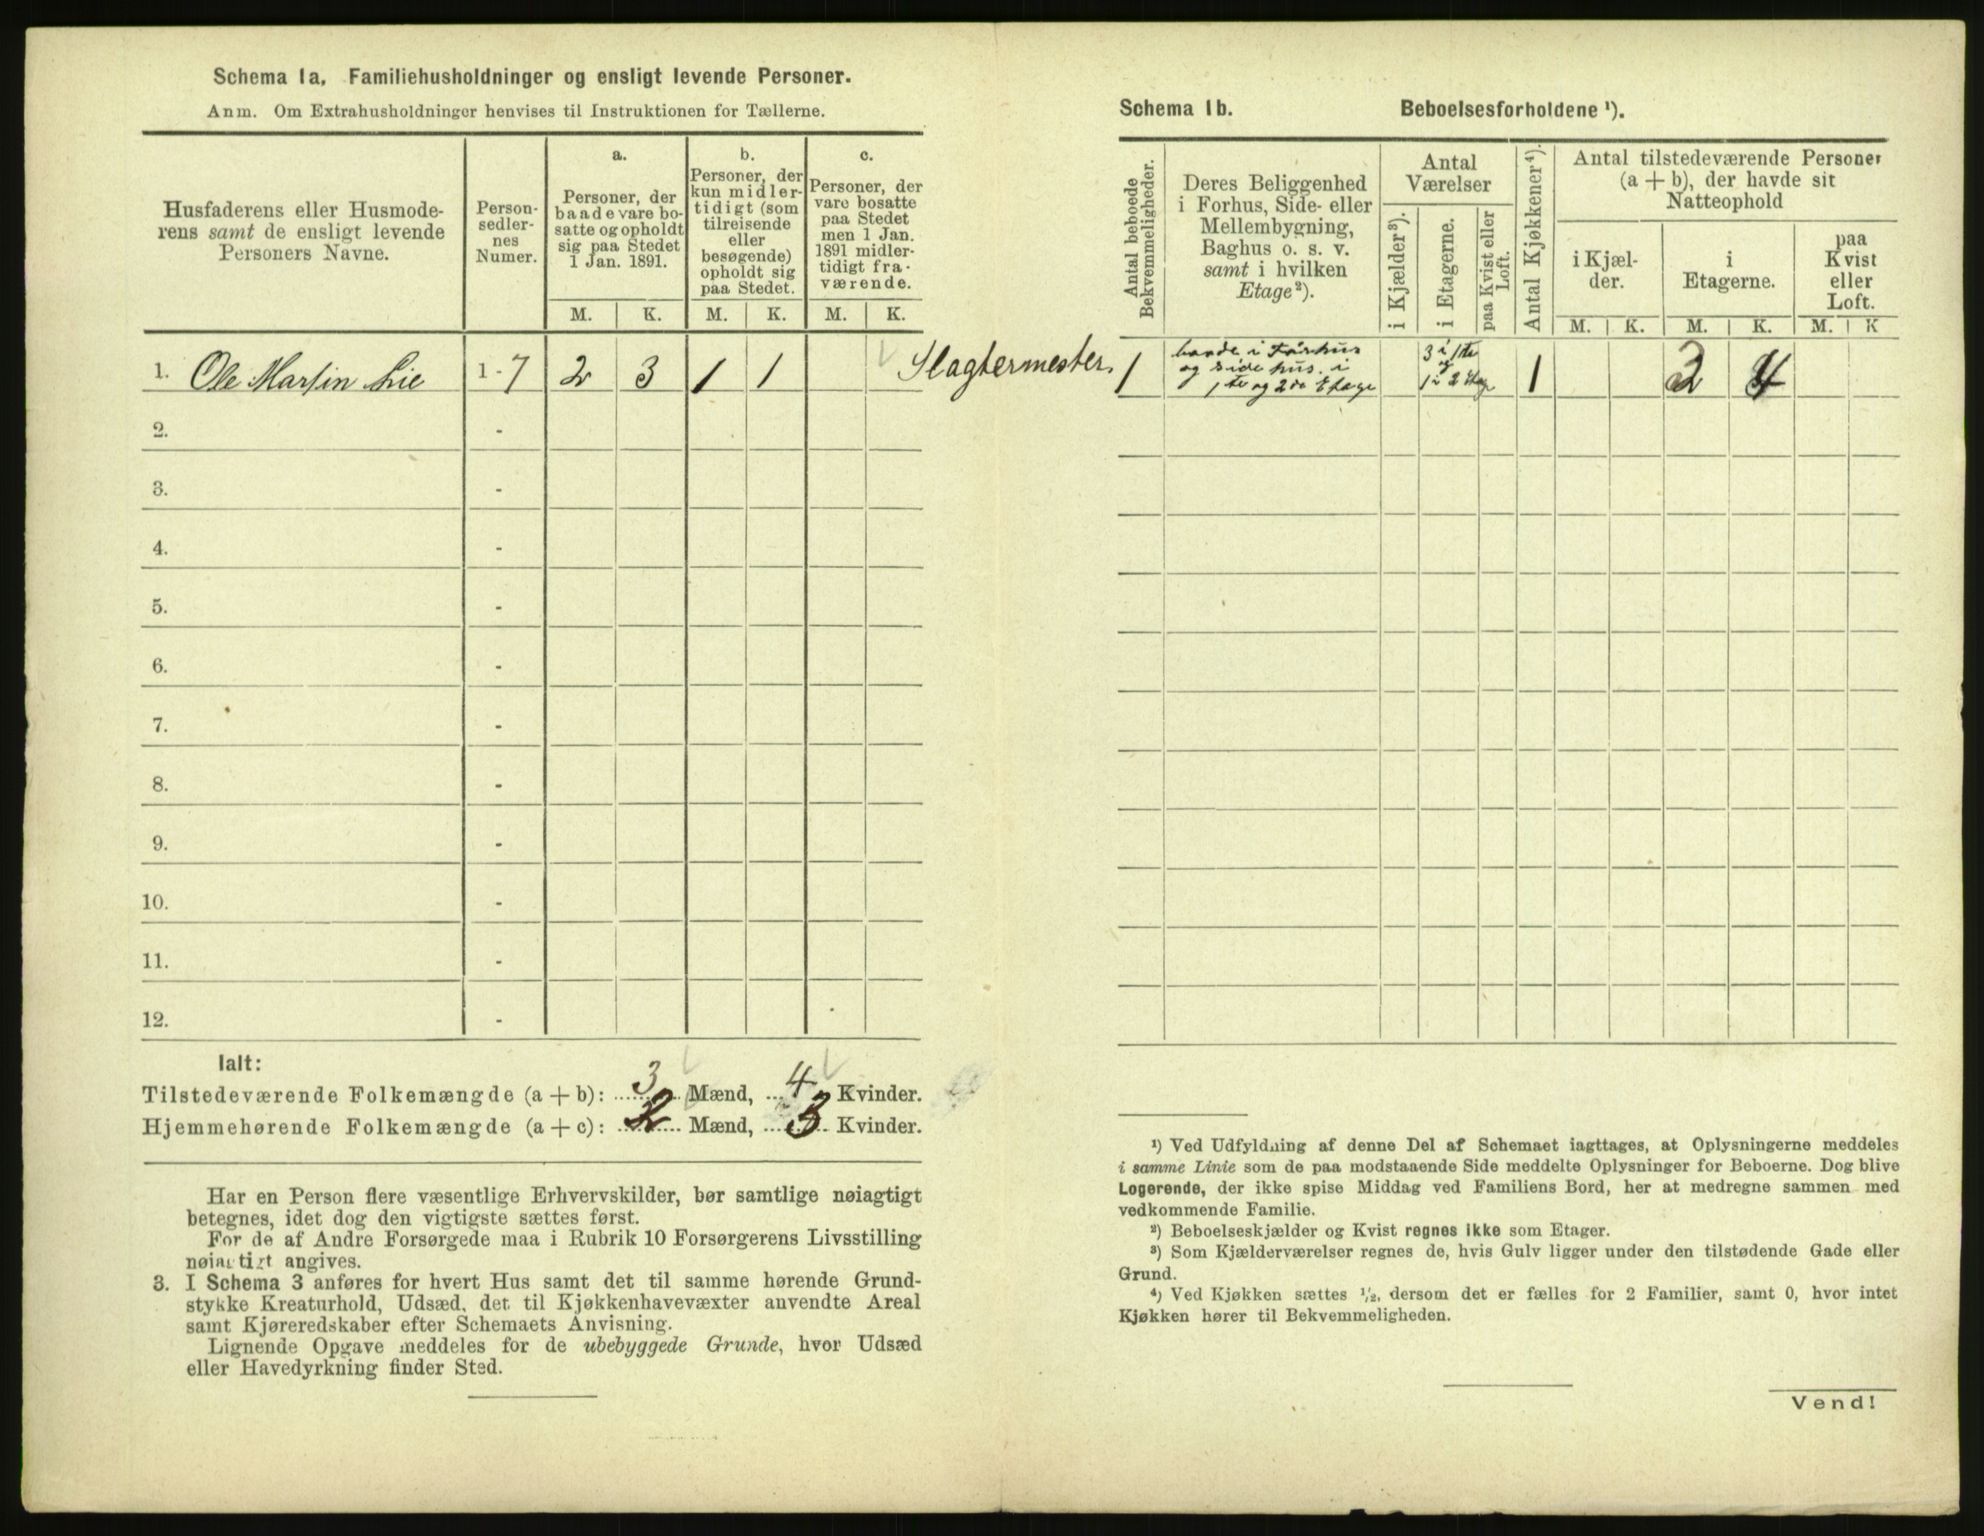 Schema 1a. Familiehusholdninger og ensligt levende Personer.
Anm. Om Extrahusholdninger henvises til Instruktionen for Tællerne.
Husfaderens eller Husmode-
rens samt de ensligt levende
Personers Navne.
Person-
sedler-
nes
Numer.
a.
Personer, der
baade vare bo-
satte og opholdt
sig paa Stedet
1 Jan. 1891.
b.
Personer, der
kun midler-
tidigt (som
tilreisende
eller
besøgende)
opholdt sig
paa Stedet.
c.
Personer, der
vare bosatte
paa Stedet
men 1 Jan.
1891 midler-
tidigt fra-
værende.
M. K. M. K. M. K.
1. Ole Martin Lie 1 - 7 2 3 1 1 Slagtermester
2. -
3. -
4. -
5. -
6. -
7. -
8. -
9. -
10. -
11. -
12. -
Ialt:
Tilstedeværende Folkemængde (a + b): 3 Mænd, 4 Kvinder.
Hjemmehørende Folkemængde (a + c): 2 Mænd, 3 Kvinder.
Har en Person flere væsentlige Erhvervskilder, bør samtlige nøiagtigt
betegnes, idet dog den vigtigste sættes først.
For de af Andre Forsørgede maa i Rubrik 10 Forsørgerens Livsstilling
nøiagtigt angives.
3. I Schema 3 anføres for hvert Hus samt det til samme hørende Grund-
stykke Kreaturhold, Udsæd, det til Kjøkkenhavevæxter anvendte Areal
samt Kjøreredskaber efter Schemaets Anvisning.
Lignende Opgave meddeles for de ubebyggede Grunde, hvor Udsæd
eller Havedyrkning finder Sted.
Schema 1b. Beboelsesforholdene ¹).
Antal beboede
Bekvemmeligheder.
Deres Beliggenhed
i Forhus, Side- eller
Mellembygning,
Baghus o. s. v.
samt i hvilken
Etage²).
Antal
Værelser
i Kjælder³).
i Etagerne.
paa Kvist eller
Loft.
Antal Kjøkkener⁴).
Antal tilstedeværende Personer
(a + b), der havde sit
Natteophold
i Kjæl-
der.
i
Etagerne.
paa
Kvist
eller
Loft.
M. K. M. K. M. K
1 baade i Forhus
og side hus. i
1te og 2de Etage
3 i 1te
og
1 i 2 Etage
1 3 4
¹) Ved Udfyldning af denne Del af Schemaet iagttages, at Oplysningerne meddeles
i samme Linie som de paa modstaaende Side meddelte Oplysninger for Beboerne. Dog blive
Logerende, der ikke spise Middag ved Familiens Bord, her at medregne sammen med
vedkommende Familie.
²) Beboelseskjælder og Kvist regnes ikke som Etager.
³) Som Kjælderværelser regnes de, hvis Gulv ligger under den tilstødende Gade eller
Grund.
⁴) Ved Kjøkken sættes ½, dersom det er fælles for 2 Familier, samt 0, hvor intet
Kjøkken hører til Bekvemmeligheden.
Vend!